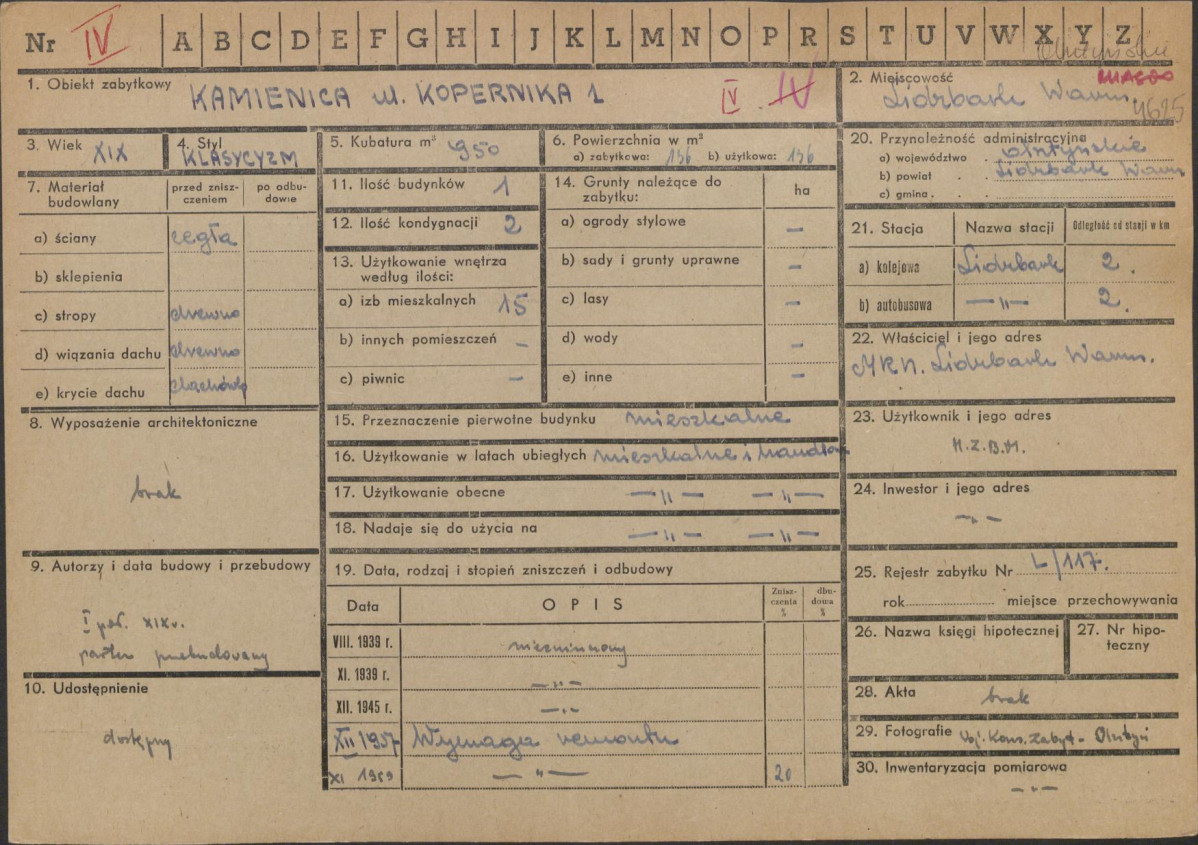 Nr IV A B C D E F G H I J K L M N O P R S T U V W X Y Z
1. Obiekt zabytkowy KAMIENICA ul. KOPERNIKA 1 IV IV
2. Miejscowość
Lidzbark Warm. 4625
3. Wiek XIX
4. Styl KLASYCYZM
5. Kubatura m³ 950
6. Powierzchnia w m²
a) zabytkowa: 136 b) użytkowa: 136
20. Przynależność administracyjna
a) województwo olsztyńskie
b) powiat Lidzbark Warm
c) gmina
7. Materiał budowlany
przed zniszczeniem
po odbudowie
a) ściany cegła
b) sklepienia
c) stropy drewno
d) wiązania dachu drewno
e) krycie dachu dachówka
11. Ilość budynków 1
12. Ilość kondygnacji 2
13. Użytkowanie wnętrza
według ilości:
a) izb mieszkalnych 15
b) innych pomieszczeń -
c) piwnic -
14. Grunty należące do
zabytku: ha
a) ogrody stylowe -
b) sady i grunty uprawne -
c) lasy -
d) wody -
e) inne -
21. Stacja Nazwa stacji Odległość od stacji w km
a) kolejowa Lidzbark 2.
b) autobusowa —„— 2.
22. Właściciel i jego adres
MRN. Lidzbark Warm.
8. Wyposażenie architektoniczne
brak
15. Przeznaczenie pierwotne budynku mieszkalne
16. Użytkowanie w latach ubiegłych mieszkalne i handlow
17. Użytkowanie obecne —„— —„—
18. Nadaje się do użycia na —„— —„—
23. Użytkownik i jego adres
M.Z.B.M.
24. Inwestor i jego adres
—„—
9. Autorzy i data budowy i przebudowy
I poł. XIX w.
parter przebudowany
10. Udostępnienie
dostępny
19. Data, rodzaj i stopień zniszczeń i odbudowy
Data OPIS Zniszczenia % dbudowa %
VIII. 1939 r. niezniszczony
XI. 1939 r. —„—
XII. 1945 r. —„—
XII 1957 Wymaga remontu
XI 1959 —„— 20
25. Rejestr zabytku Nr L/117.
rok miejsce przechowywania
26. Nazwa księgi hipotecznej
27. Nr hipoteczny
28. Akta brak
29. Fotografie Woj. Kons. Zabyt. - Olsztyn
30. Inwentaryzacja pomiarowa
—„—